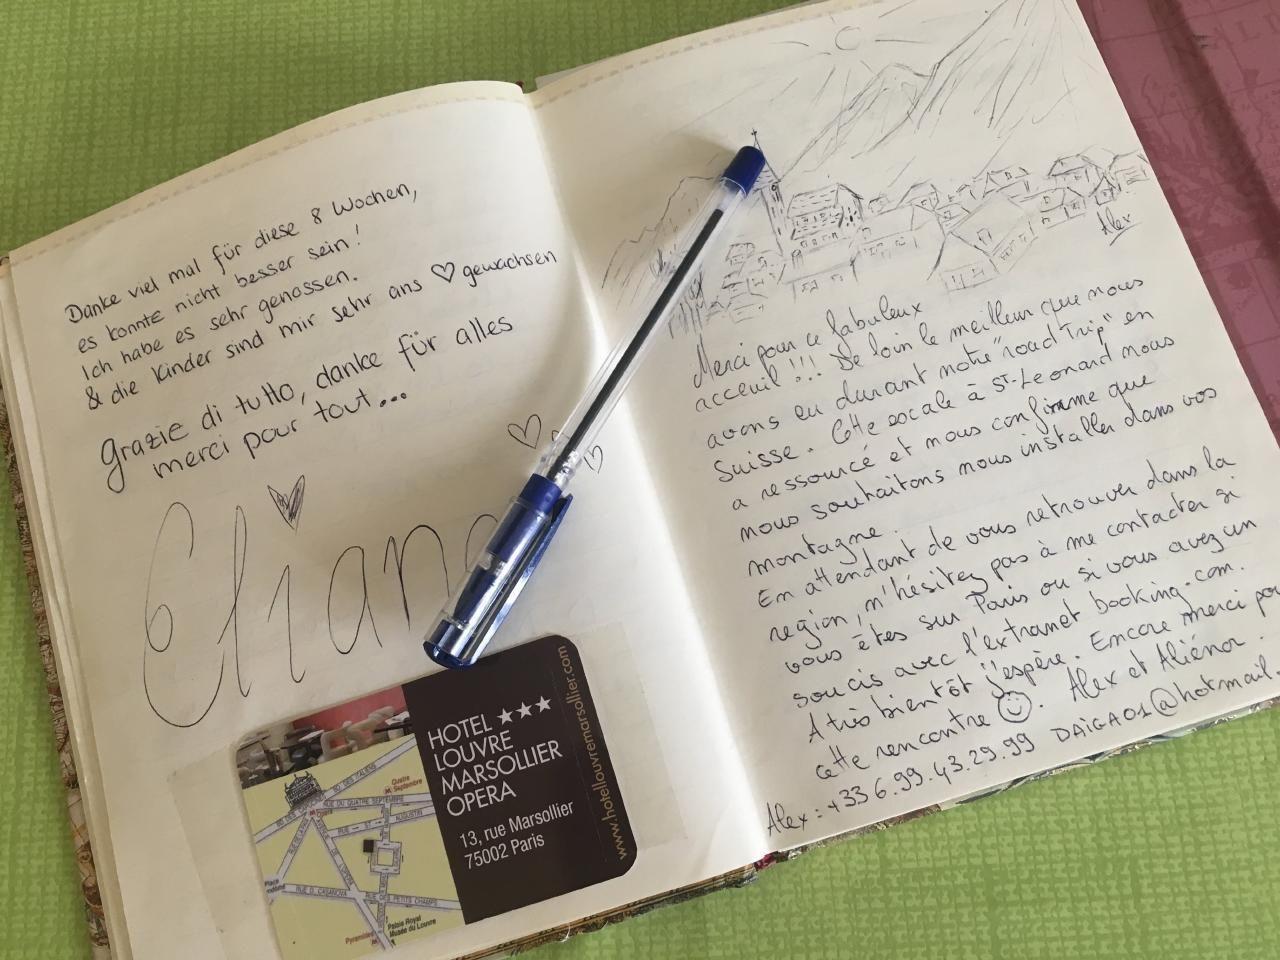 Danke viel mal für diese 8 Wochen,
es konnte nicht besser sein!
Ich habe es sehr genossen.
& die Kinder sind mir sehr ans ♡ gewachsen
Grazie di tutto, danke für alles
merci pour tout...
Elian
HOTEL ★★★
LOUVRE
MARSOLLIER
OPERA
13, rue Marsollier
75002 Paris
www.hotellouvremarsollier.com
Quatre
Septembre
RUE DU QUATRE SEPTEMBRE
RUE ST AUGUSTIN
RUE D. CASANOVA
RUE DES PETITS CHAMPS
Pyramides
Palais Royal
Musée du Louvre
Alex
Merci pour ce fabuleux
acceuil !!! De loin le meilleur que nous
avons eu durant notre "road Trip" en
Suisse. Cette escale à St-Leonard nous
a ressourcé et nous confirme que
nous souhaitons nous installer dans vos
montagne.
En attendant de vous retrouver dans la
region, n'hésitez pas à me contacter si
vous êtes sur Paris ou si vous avez un
soucis avec l'extranet booking.com.
A très bientôt j'espère. Encore merci pour
cette rencontre ☺. Alex et Aliénor.
Alex : +33 6.99.43.29.99 DAIGA01@hotmail.